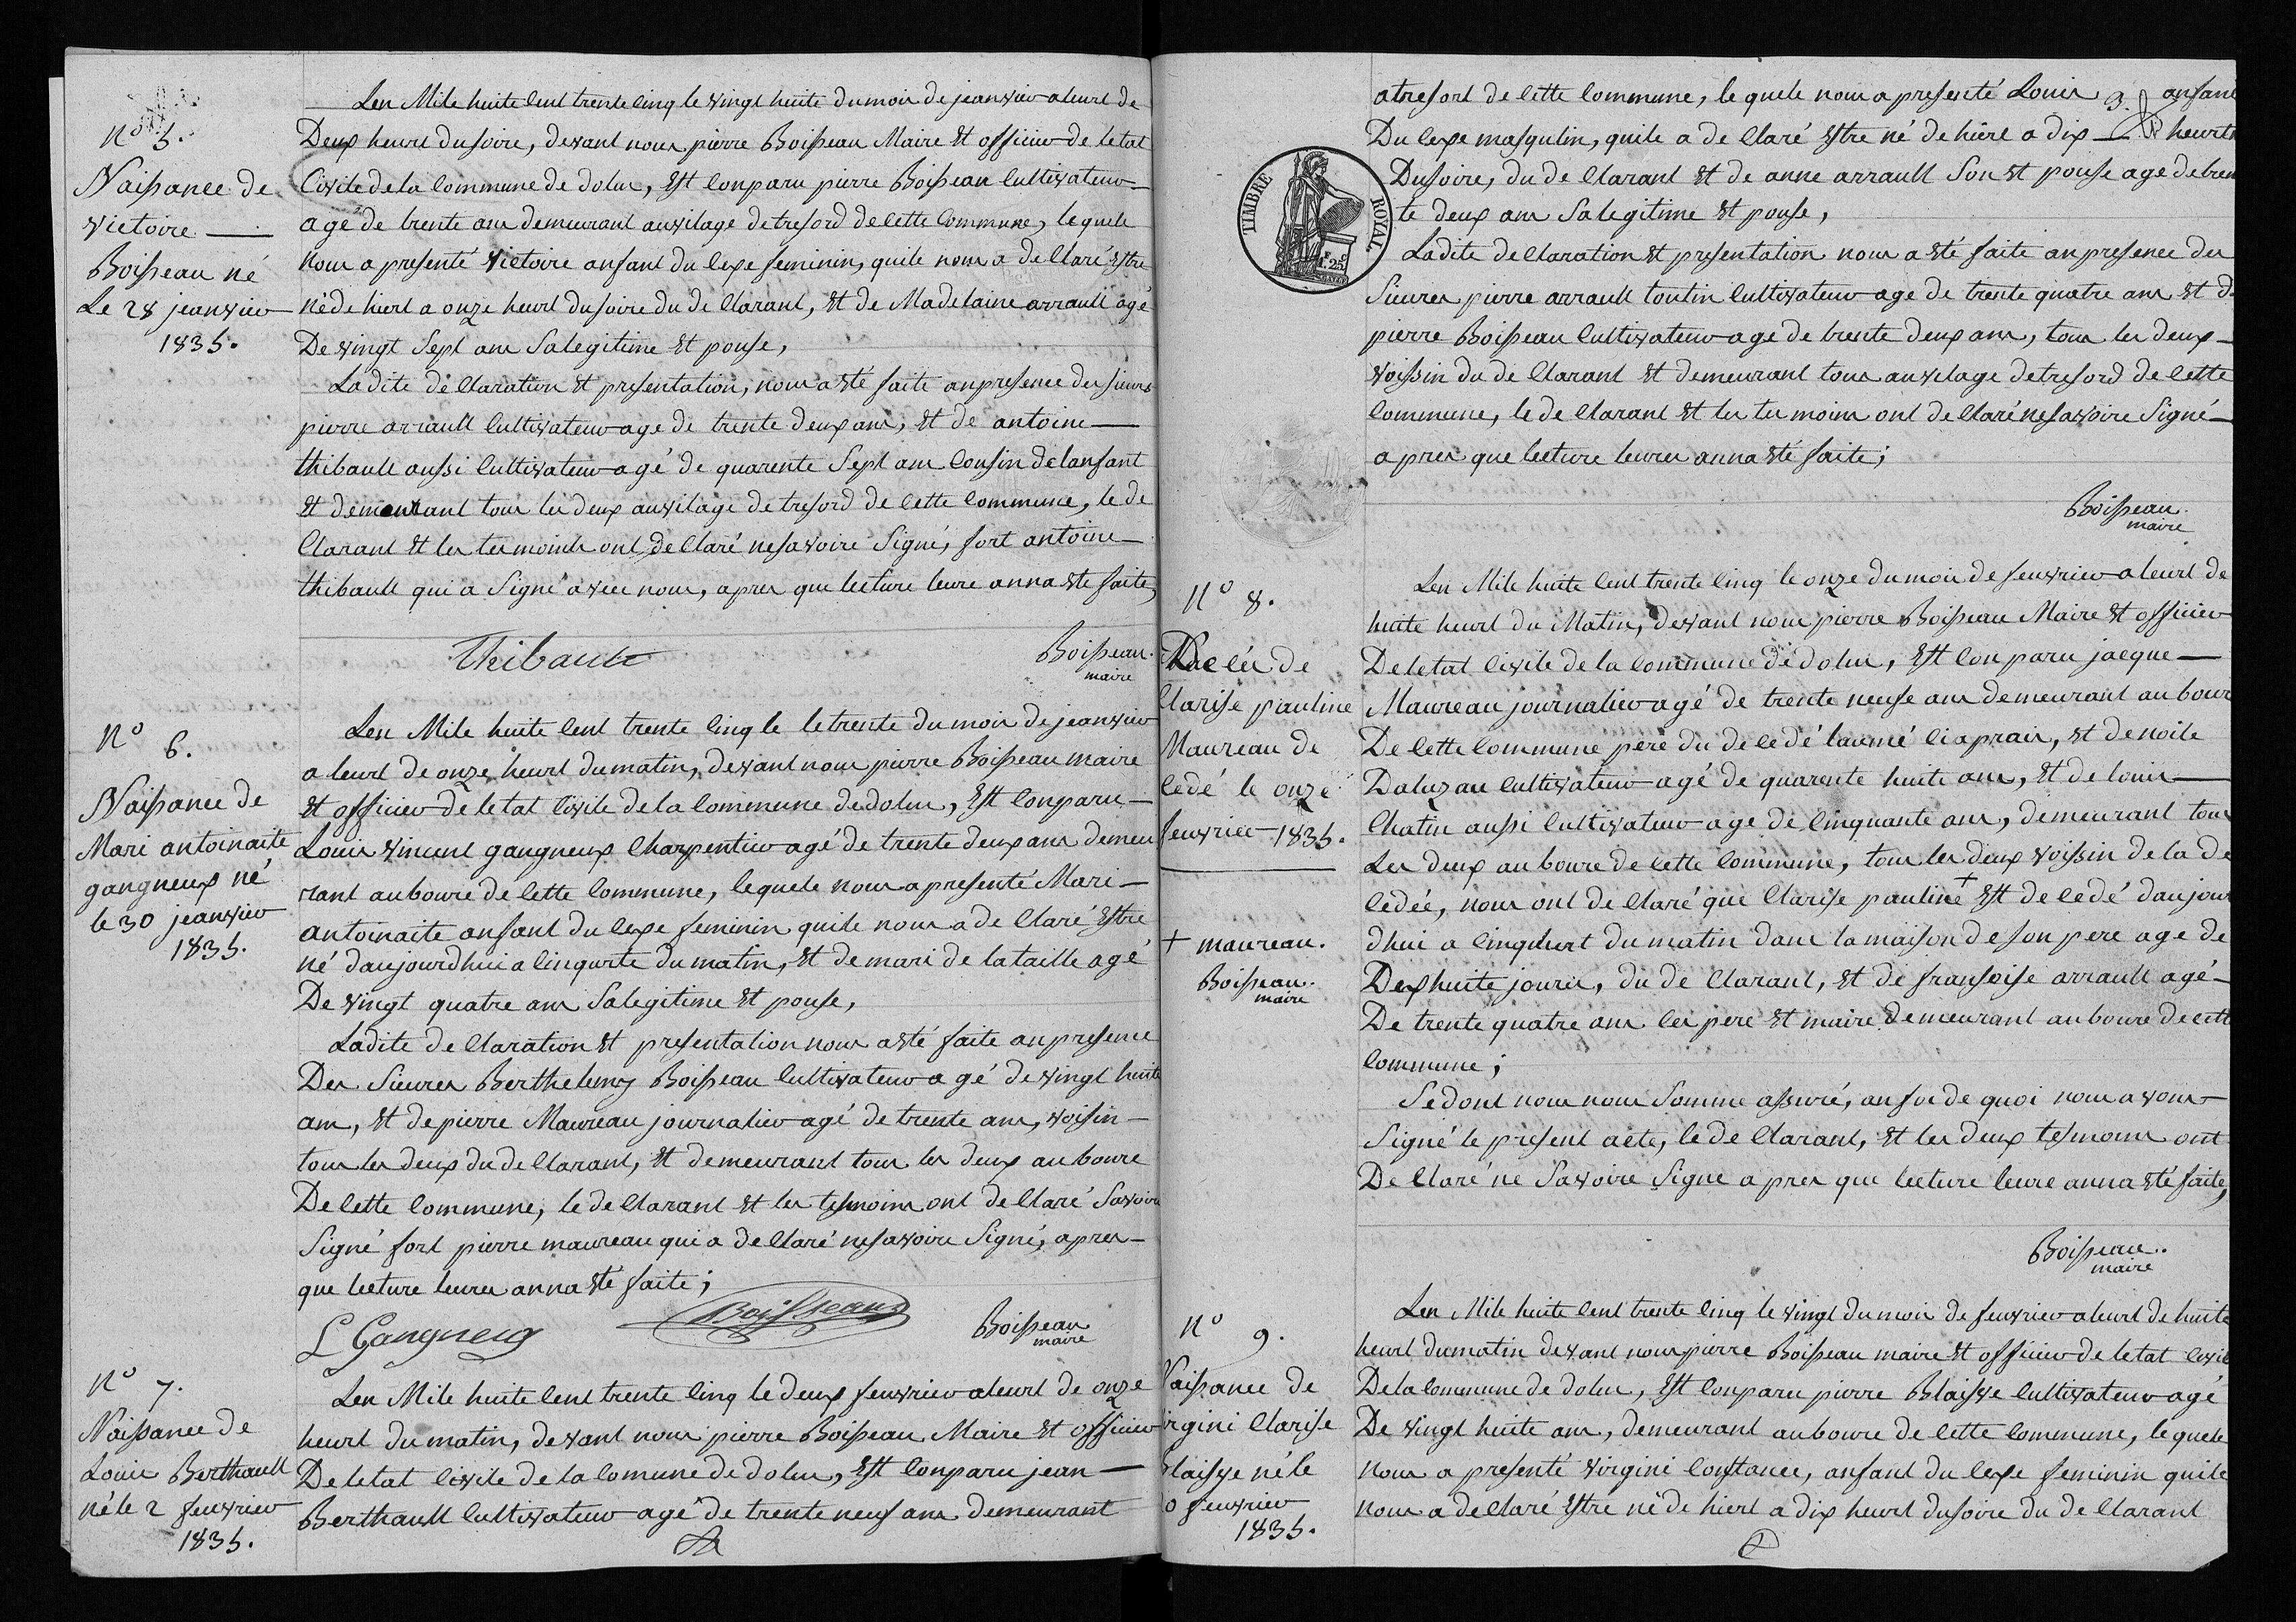 N° 5.
Naissance de
victoire
Boisseau né
Le 28 jeanvier
1835.
Len Mile huite Cent trente Cinq le vingt huite du moi de jeanvier aleurt de
Deux heurt du soire, devant nous pierre Boisseau Maire Et officier de létat
Civile de la Commune de dolus, Est Conparu pierre Boisseau Cultivateur
agé de trente ans demeurant auvilage de tresord de Cette Commune, lequele
nous a presenté Victoire anfant du Cexe feminin, quile nous a de Claré Estre
né de hiert a onze heurt du soire du de Clarant, Et de Madelaine arrault agé
De vingt Sept ans Salegitime Et pouse,
Ladite de Claration Et presentation, nous a Eté faite anpresence des sieurs
pierre arrault Cultivateur age de trente deux ans, Et de antoine
thibault aussi Cultivateur agé de quarente Sept ans Cousin de lanfant
Et demeurant tous les deux auvilage de tresord de Cette Commune, le de
Clarant Et les temoints ont de Claré nesavoire Signé, fort antoine
thibault qui a Signé avec nous, apres que lecture leure anna Eté faite,
Thibault
Boisseau
maire
N° 6.
Naissance de
Mari antoinaite
gangneux né
le 30 jeanvier
1835.
Len Mile huite Cent trente Cinq le le trente du moi de jeanvier
a leurt de onze heurt du matin, devant nous pierre Boisseau maire
Et officier de letat Civile de la Commune de dolus, Est Conparu
Louis vincent gangneux Charpentier agé de trente deux ans demeu
rant au boure de Cette Commune, lequele nous a presenté Mari
antoinaite anfant du Cexe feminin quile nous a de Claré Estre
né daujourdhui a Cinqurte du matin, Et de mari de lataille agé
De vingt quatre ans Salegitime Et pouse,
Ladite de Claration Et presentation nous a Eté faite anpresence
Des Sieures Berthelemy Boisseau Cultivateur agé de vingt huite
ans, Et de pierre Maureau journalier agé de trente ans, voisin
tous les deux du de Clarant, Et demeurant tous les deux au boure
De Cette Commune, le de Clarant Et les tesmoins ont de Claré Savoire
Signé fort pierre maureau qui a de Claré nesavoire Signé, apres
que lecture leures anna Eté faite;
L Gangneux
Boisseau
Boisseau
maire
N° 7.
Naissance de
Louis Berthault
né le 2 feuvrier
1835.
Len Mile huite Cent trente Cinq le deux feuvrier aleurt de onze
heurt du matin, devant nous pierre Boisseau Maire Et officier
De letat Civile de la Comune de dolus, Est Conparu jean
Berthault Cultivateur agé de trente neuf ans demeurant
3.
atresort de Cette Commune, le quele nous a presenté Louis anfant
Du Cexe masqulin, quile a de Claré Estre né de hière a dix heurts
Du soire, du de Clarant Et de anne arrault Son Et pouse age de tren
te deux ans Salegitime Et pouse,
TIMBRE ROYAL
Ladite de Claration Et presentation nous a Eté faite anpresence des
Sieures pierre arrault tontin Cultivateur age de trente quatre ans Et d
pierre Boisseau Cultivateur age de trente deux ans, tous les deux
voissin du de Clarant Et demeurant tous auvilage de tresord de Cette
Commune, le de Clarant Et les temoins ont de Claré nesavoire Signé
apres que lecture leures anna Eté faite;
Boisseau
maire
N° 8.
Decés de
Clarise pauline
Maureau de
Cedé le onze
feuvrier 1835.
Len Mile huite Cent trente Cinq le onze du moi de feuvrier aleurt de
huite heurt du Matin, devant nous pierre Boisseau Maire Et officier
De letat Civile de la Commune de dolus, Est Conparu jacque
Maureau journalier agé de trente neufe ans demeurant au bour
De Cette Commune pere du de Cedé Nommé Ciaprais, Et de noile
Daluzau Cultivateur agé de quarente huite ans, Et de louis
Chatin aussi Cultivateur age de Cinquante ans, demeurant tous
Les deux au boure de Cette Commune, tous les deux voissin de la de
Cedée, nous ont de Claré que Clarise pauline + Est de Cedé daujour
dhui a Cinqheurt du matin dans la maison de son pere age de
Dexhuite jours, du de Clarant, Et de fransoise arrault agé
De trente quatre ans les pere Et maire demeurant au boure de Cette
Commune;
+ maureau.
Boisseau
maire
Se dont nous nous Somme assuré, an foi de quoi nous avons
Signé le present acte, le de Clarant, Et les deux tesmoins ont
De Claré ne Savoire Signe apres que lecture leure anna Eté faite,
Boisseau
maire
N° 9.
Naissance de
irgini Clarise
Blaisye né le
0 feuvrier
1835.
Len Mile huite Cent trente Cinq le vingt du moi de feuvrier aleurt de huite
heurt du matin devant nous pierre Boisseau maire Et officier de letat Civil
De la Commune de dolus, Est Conparu pierre Blaisye Cultivateur agé
De vingt huite ans, demeurant au boure de Cette Commune, le quele
nous a presenté virgini Constance, anfant du Cexe feminin quile
nous a de Claré Estre né de hiert a dix heurt du soire du de Clarant